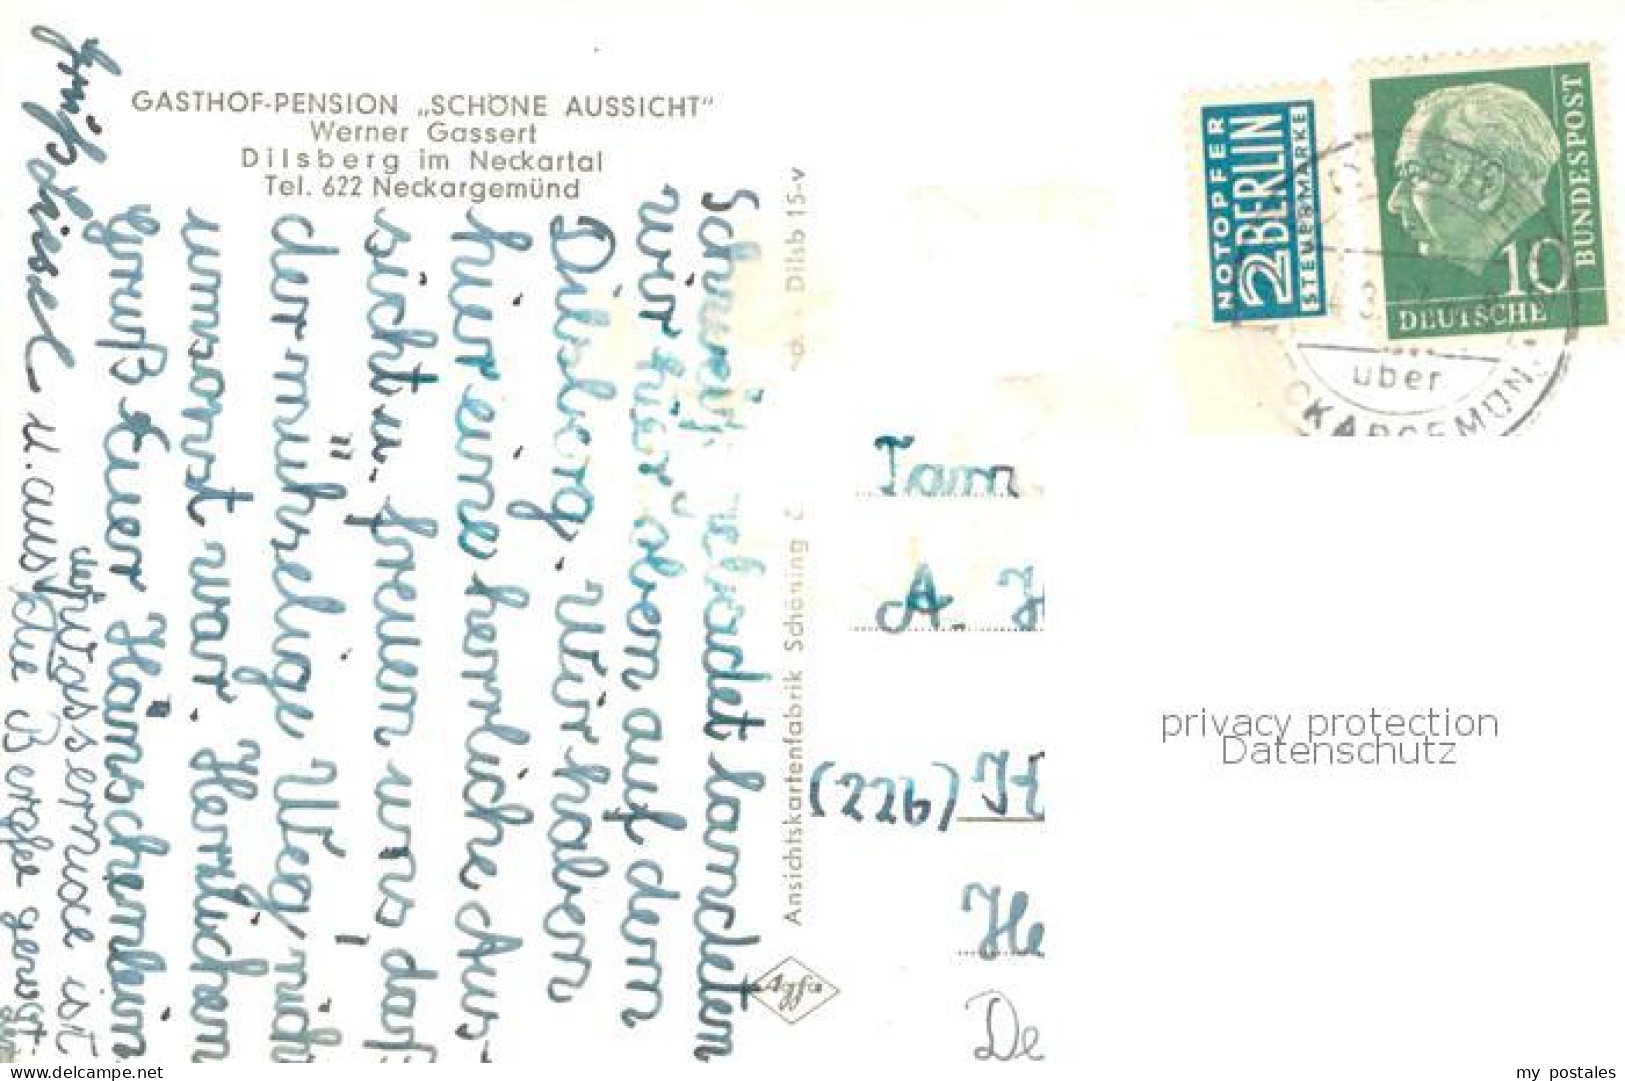 GASTHOF-PENSION „SCHÖNE AUSSICHT"
Werner Gassert
Dilsberg im Neckartal
Tel. 622 Neckargemünd
landeten
wir hier oben auf dem
Dilsberg. Wir haben
hier eine herrliche Aus-
sicht u. freuen uns daß
der mühselige Weg nicht
umsonst war. Herzlichen
Gruß Euer Hänschenklein
grüßt
u. aus der Wasserhose ist
die
Ansichtskartenfabrik Schöning
Dilsb 15-v
Agfa
NOTOPFER
2 BERLIN
STEUERMARKE
DEUTSCHE
BUNDESPOST
10
über
Fam
A.
(22b)
He
De
privacy protection
Datenschutz
www.delcampe.net
my_postales